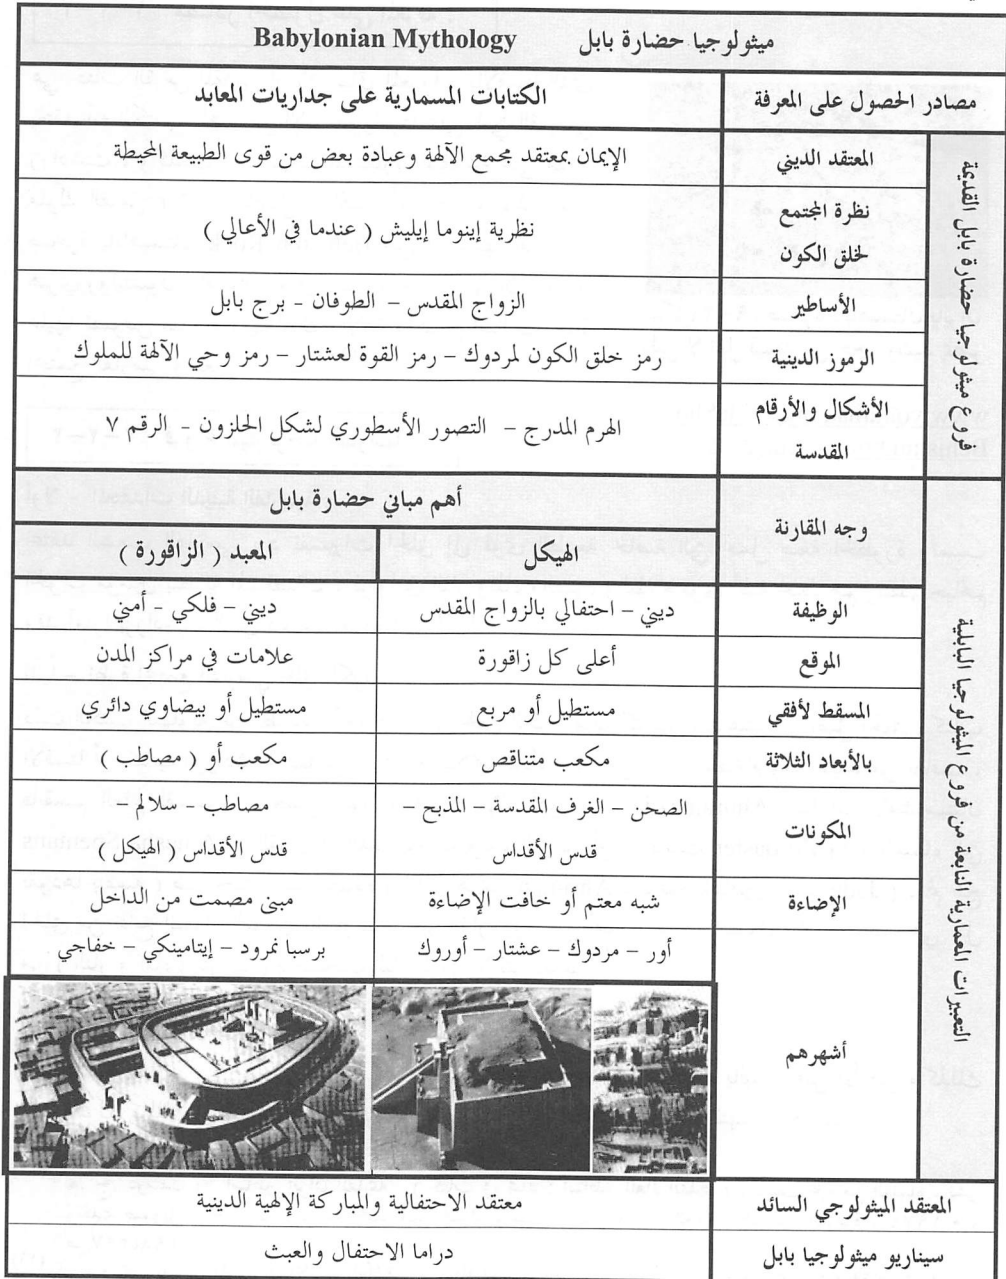 ميثولوجيا حضارة بابل Babylonian Mythology
مصادر الحصول على المعرفة
الكتابات المسمارية على جداريات المعابد
فروع ميثولوجيا حضارة بابل القديمة
المعتقد الديني
الإيمان بمعتقد مجمع الآلهة وعبادة بعض من قوى الطبيعة المحيطة
نظرة المجتمع
لخلق الكون
نظرية إينوما إيليش ( عندما في الأعالي )
الأساطير
الزواج المقدس – الطوفان - برج بابل
الرموز الدينية
رمز خلق الكون لمردوك – رمز القوة لعشتار – رمز وحي الآلهة للملوك
الأشكال والأرقام
المقدسة
الهرم المدرج – التصور الأسطوري لشكل الحلزون - الرقم ٧
التعبيرات المعمارية النابعة من فروع الميثولوجيا البابلية
وجه المقارنة
أهم مباني حضارة بابل
الهيكل
المعبد ( الزاقورة )
الوظيفة
ديني – احتفالي بالزواج المقدس
ديني – فلكي - أمني
الموقع
أعلى كل زاقورة
علامات في مراكز المدن
المسقط لأفقي
مستطيل أو مربع
مستطيل أو بيضاوي دائري
بالأبعاد الثلاثة
مكعب متناقص
مكعب أو ( مصاطب )
المكونات
الصحن – الغرف المقدسة – المذبح –
قدس الأقداس
مصاطب – سلالم –
قدس الأقداس ( الهيكل )
الإضاءة
شبه معتم أو خافت الإضاءة
مبنى مصمت من الداخل
أشهرهم
أور – مردوك – عشتار – أوروك
برسبا نمرود – إيتامينكي – خفاجي
المعتقد الميثولوجي السائد
معتقد الاحتفالية والمباركة الإلهية الدينية
سيناريو ميثولوجيا بابل
دراما الاحتفال والعبث